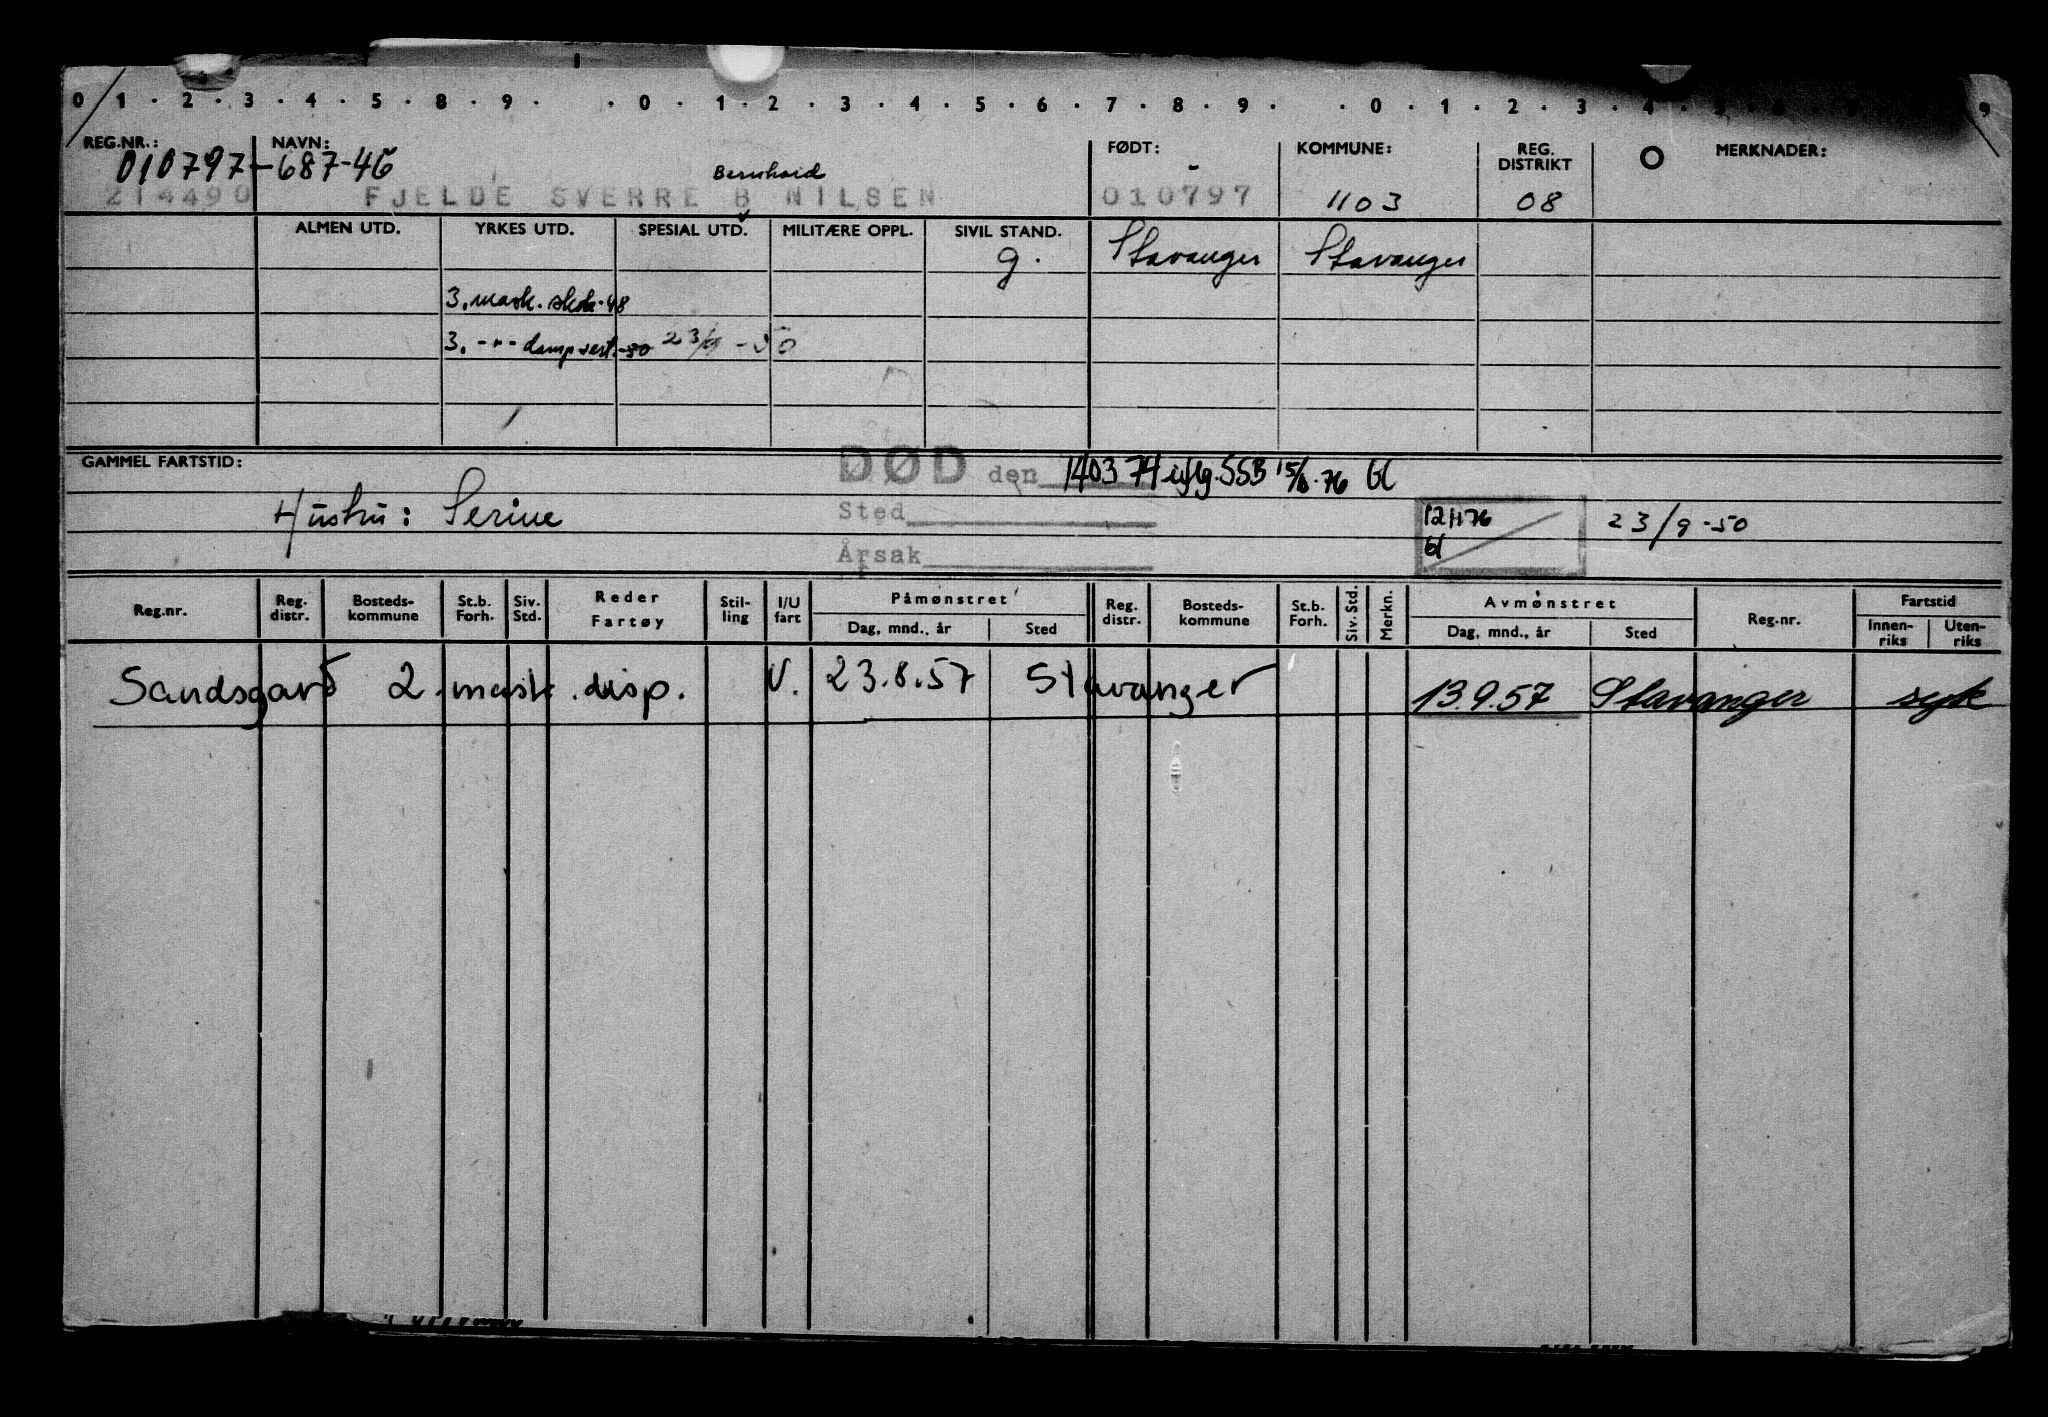 0 1 . 2 . 3 . 4 . 5 . 8 . 9 . . 0 . 1 . 2 . 3 . 4 . 5 . 6 . 7 . 8 . 9 . . 0 . 1 . 2 . 3 . 4 . 5 . 6 . 7 9
REG.NR.: NAVN: FØDT: KOMMUNE: REG. DISTRIKT MERKNADER:
010797-687-45
Bernhard
214490 FJELDE SVERRE B NILSEN 010797 1103 08
ALMEN UTD. YRKES UTD. SPESIAL UTD. MILITÆRE OPPL. SIVIL STAND.
g. Stavanger Stavanger
3. mask. -48
3. -"- damp sert. -50 23/9 - 50
GAMMEL FARTSTID:
DØD den 140374 iflg. SSB 76 Gl
Hustru: Serine
Sted
Årsak
76
Gl
23/9-50
Reg.nr. Reg. distr. Bosteds-kommune St.b. Forh. Siv. Std. Reder Fartøy Stil-ling I/U fart Påmønstret Dag, mnd., år Sted Reg. distr. Bosteds-kommune St.b. Forh. Siv. Std. Merkn. Avmønstret Dag, mnd., år Sted Reg.nr. Fartstid Innen-riks Uten-riks
Sandsgard 2. mask. disp. U. 23.8.57 Stavanger 13.9.57 Stavanger syk